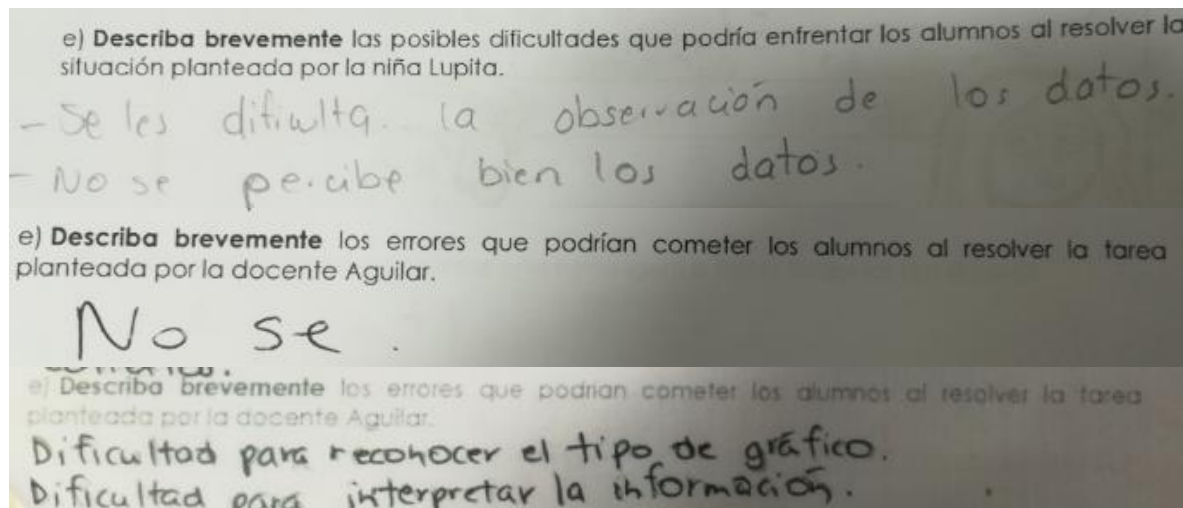 e) Describa brevemente las posibles dificultades que podría enfrentar los alumnos al resolver la
situación planteada por la niña Lupita.
- Se les dificulta. la observación de los datos.
- No se percibe bien los datos.
e) Describa brevemente los errores que podrían cometer los alumnos al resolver la tarea
planteada por la docente Aguilar.
No se.
e) Describa brevemente los errores que podrían cometer los alumnos al resolver la tarea
planteada por la docente Aguilar.
Dificultad para reconocer el tipo de gráfico.
Dificultad para interpretar la información.